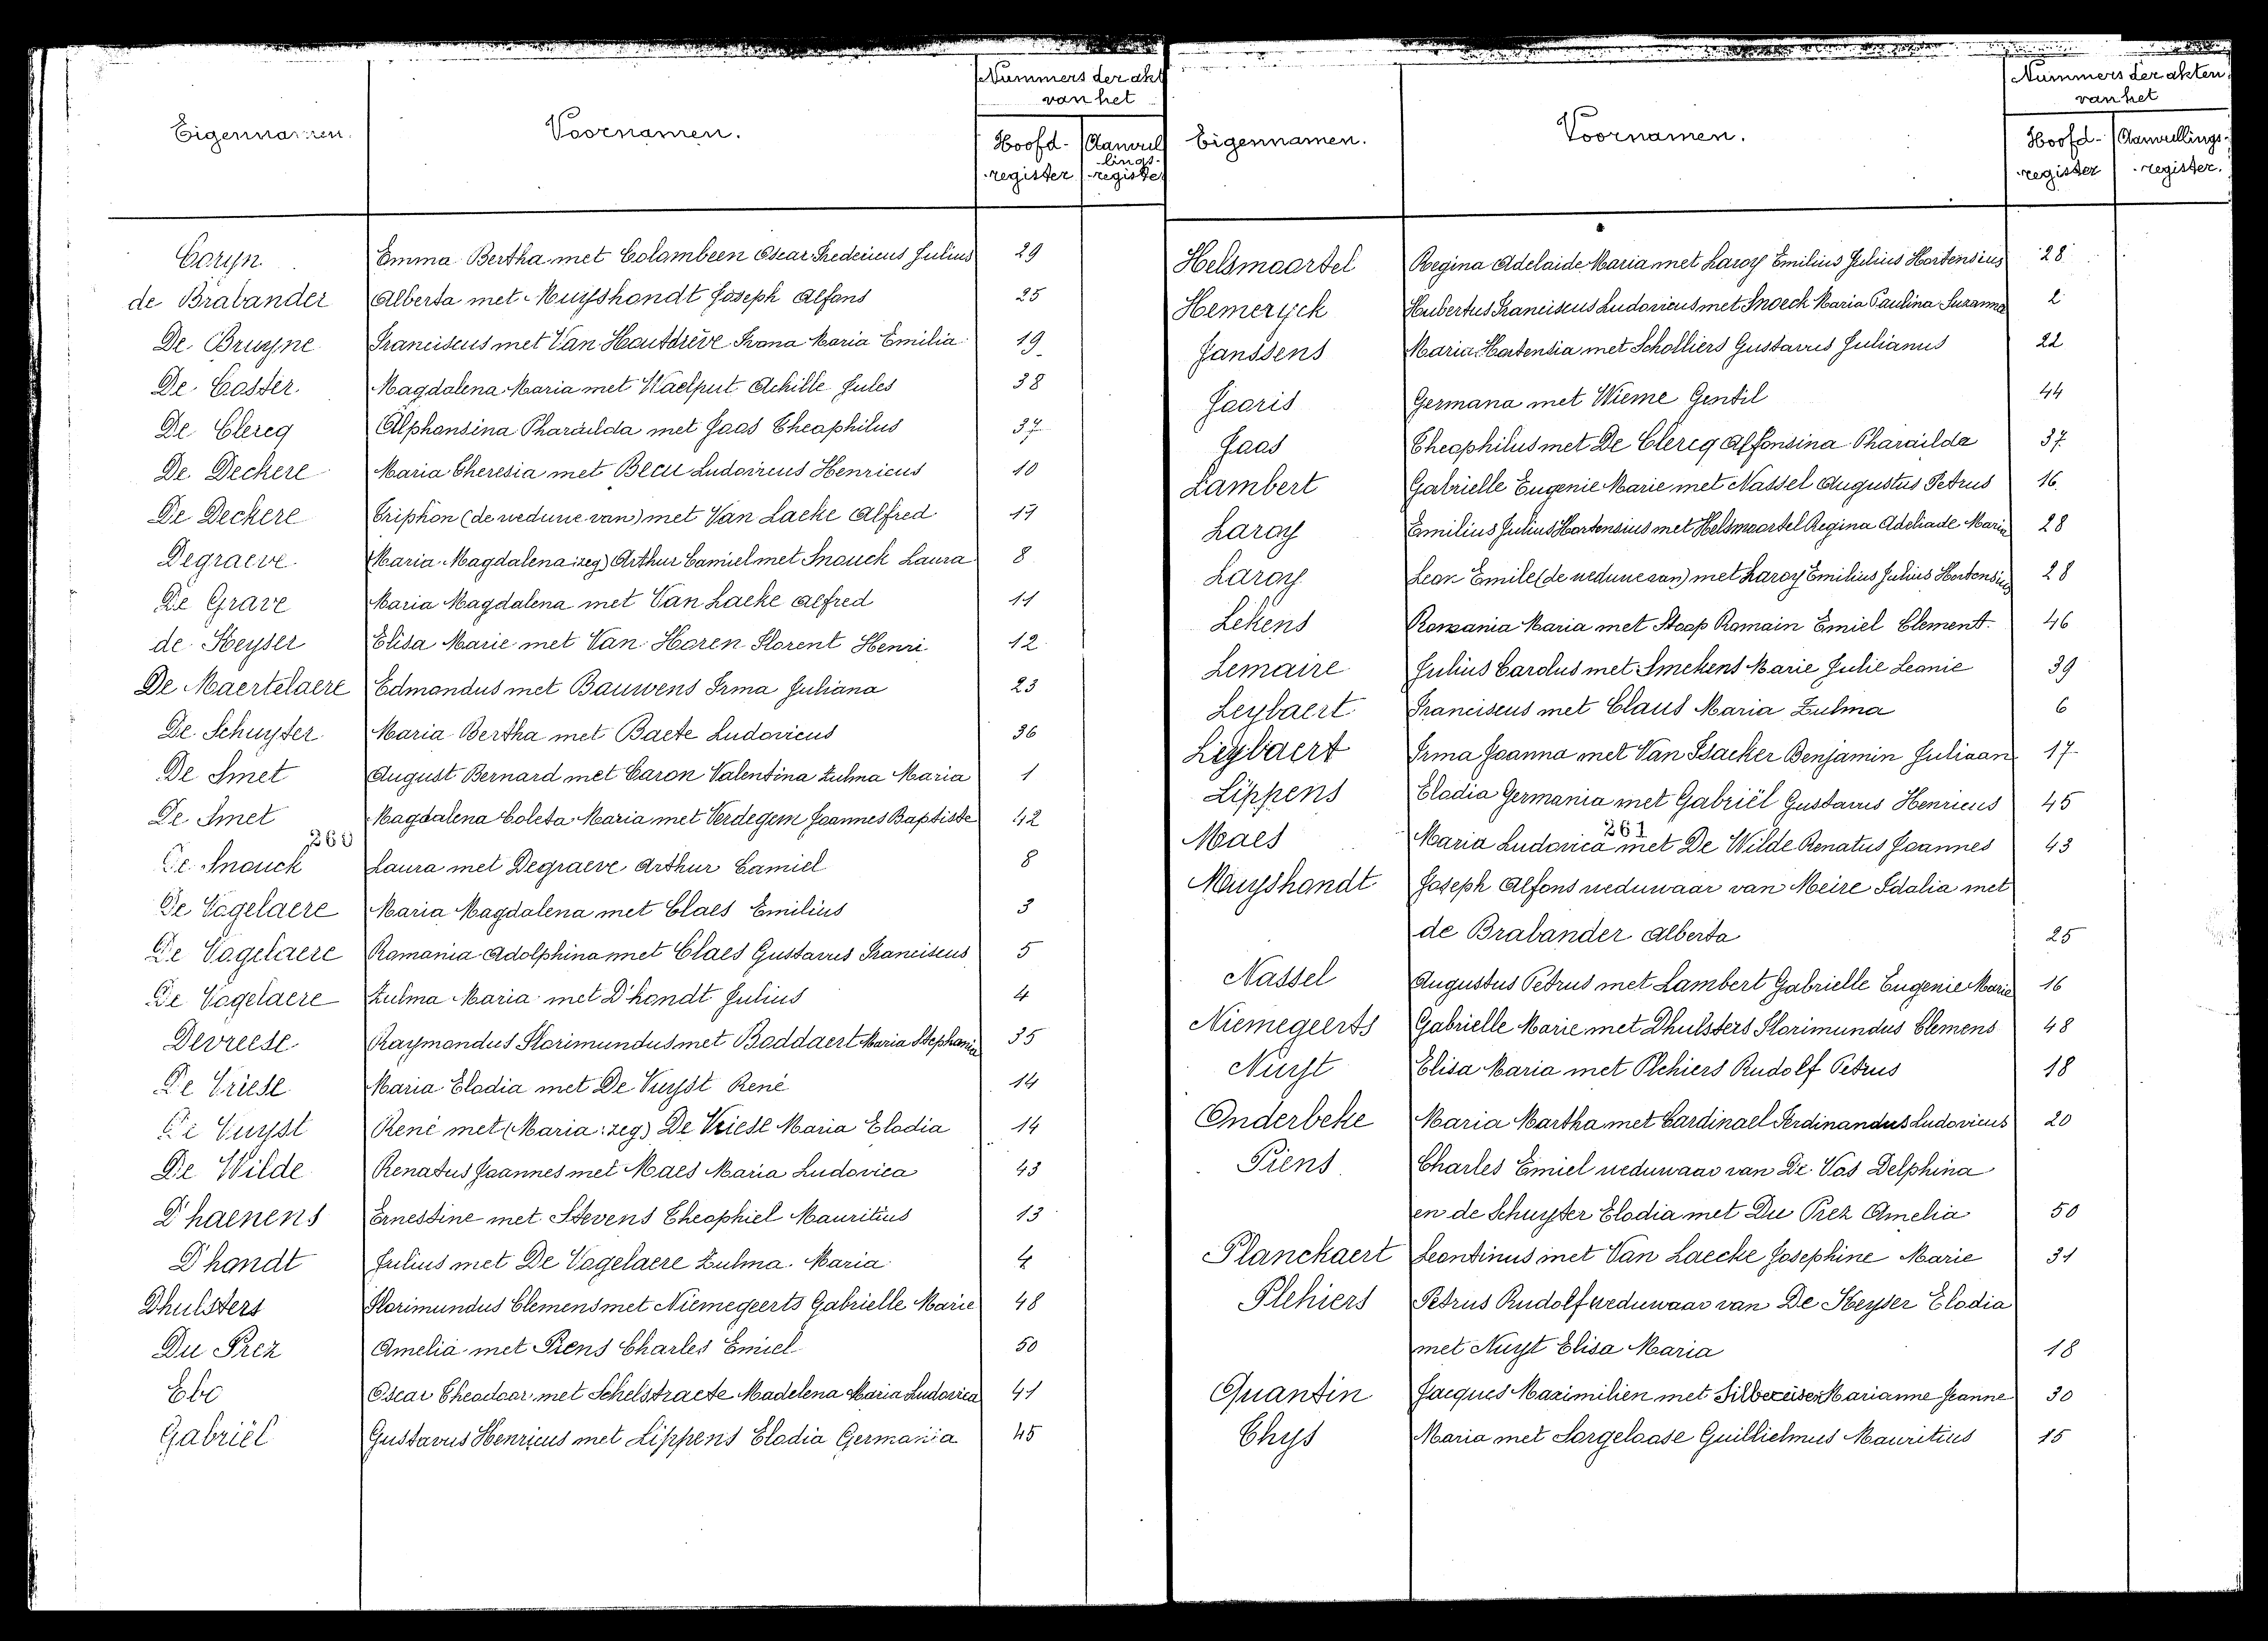 Nummers der akt
van het
Eigennamen.
Voornamen.
Hoofd-
register
Aanvul
lings-
registe
Coryn Emma Bertha met Colambeen Oscar Fredericus Julius 29
de Brabander Alberta met Muyshondt Joseph Alfons 25
De Bruyne Franciscus met Van Hautdrève Ivona Maria Emilia 19
De Coster Magdalena Maria met Waelput Achille Jules 38
De Clercq Alphonsina Pharaïlda met Jaas Theophilus 37
De Deckere Maria Theresia met Becu Ludovicus Henricus 10
De Deckere Triphon (de weduwe van) met Van Laeke Alfred 11
Degraeve Maria Magdalena (zeg) Arthur Camiel met Snouck Laura 8
De Grave Maria Magdalena met Van Laeke Alfred 11
de Keyser Elisa Marie met Van Haren Florent Henri 12
De Maertelaere Edmondus met Bauwens Irma Juliana 23
De Schuyter Maria Bertha met Baete Ludovicus 36
De Smet August Bernard met Caron Valentina Zulma Maria 1
De Smet Magdalena Coleta Maria met Verdegem Joannes Baptiste 42
260
De Snouck Laura met Degraeve Arthur Camiel 8
De Vogelaere Maria Magdalena met Claes Emilius 3
De Vogelaere Romania Adolphina met Claes Gustavus Franciscus 5
De Vogelaere Zulma Maria met D'hondt Julius 4
Devreese Raymondus Florimundus met Boddaert Maria Stephania 35
De Vriese Maria Elodia met De Vuyst René 14
De Vuyst René met (Maria: zeg) De Vriese Maria Elodia 14
De Wilde Renatus Joannes met Maes Maria Ludovica 43
D'haenens Ernestine met Stevens Theophiel Mauritius 13
D'hondt Julius met De Vogelaere Zulma Maria 4
Dhulsters Florimundus Clemens met Niemegeerts Gabrielle Marie 48
Du Prez Amelia met Piens Charles Emiel 50
Ebo Oscar Theodoor met Schelstraete Madelena Maria Ludovica 41
Gabriël Gustavus Henricus met Lippens Elodia Germania 45
Nummers der akten
van het
Eigennamen.
Voornamen.
Hoofd-
register
Aanvullings-
register.
Helsmoortel Regina Adelaide Maria met Laroy Emilius Julius Hortensius 28
Hemeryck Hubertus Franciscus Ludovicus met Snoeck Maria Paulina Suzanna 2
Janssens Maria Hortensia met Scholliers Gustavus Julianus 22
Jooris Germana met Wieme Gentil 44
Jaas Theophilus met De Clercq Alfonsina Pharaïlda 37
Lambert Gabrielle Eugenie Marie met Nassel Augustus Petrus 16
Laroy Emilius Julius Hortensius met Helsmoortel Regina Adeliade Maria 28
Laroy Leon Emile (de weduwe van) met Laroy Emilius Julius Hortensius 28
Lekens Romania Maria met Stoop Romain Emiel Clement 46
Lemaire Julius Carolus met Smekens Marie Julie Leonie 39
Leybaert Franciscus met Claus Maria Zulma 6
Leybaert Irma Joanna met Van Isacker Benjamin Juliaan 17
Lippens Elodia Germania met Gabriël Gustavus Henricus 45
261
Maes Maria Ludovica met De Wilde Renatus Joannes 43
Muyshondt Joseph Alfons weduwaar van Meire Idalia met
de Brabander Alberta 25
Nassel Augustus Petrus met Lambert Gabrielle Eugenie Marie 16
Niemegeerts Gabrielle Marie met Dhulsters Florimundus Clemens 48
Nuyst Elisa Maria met Plehiers Rudolf Petrus 18
Onderbeke Maria Martha met Cardinael Ferdinandus Ludovicus 20
Piens Charles Emiel weduwaar van De Vos Delphina
en de Schuyter Elodia met Du Prez Amelia 50
Planckaert Leontinus met Van Laecke Josephine Marie 31
Plehiers Petrus Rudolf weduwaar van De Keyser Elodia
met Nuyst Elisa Maria 18
Quantin Jacques Maximilien met Silbereisen Marianne Jeanne 30
Thys Maria met Sorgeloose Guilliclmus Mauritius 15